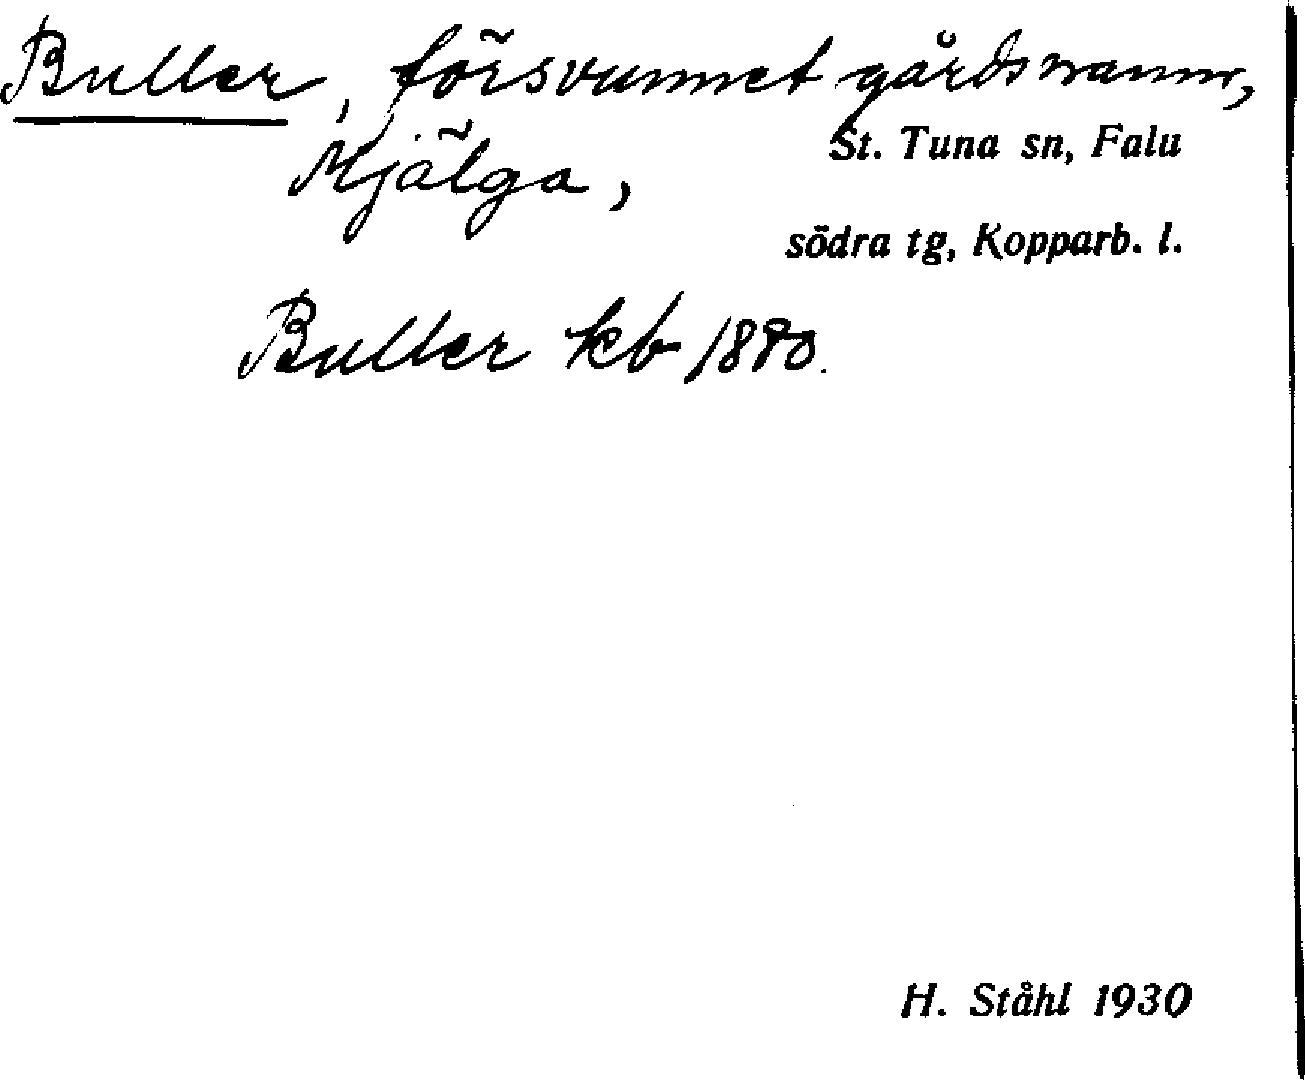 Buller, försvunnet gårdsnamn,
Mjälga,
St. Tuna sn, Falu
södra tg, Kopparb. l.
Buller kb 1890.
H. Ståhl 1930